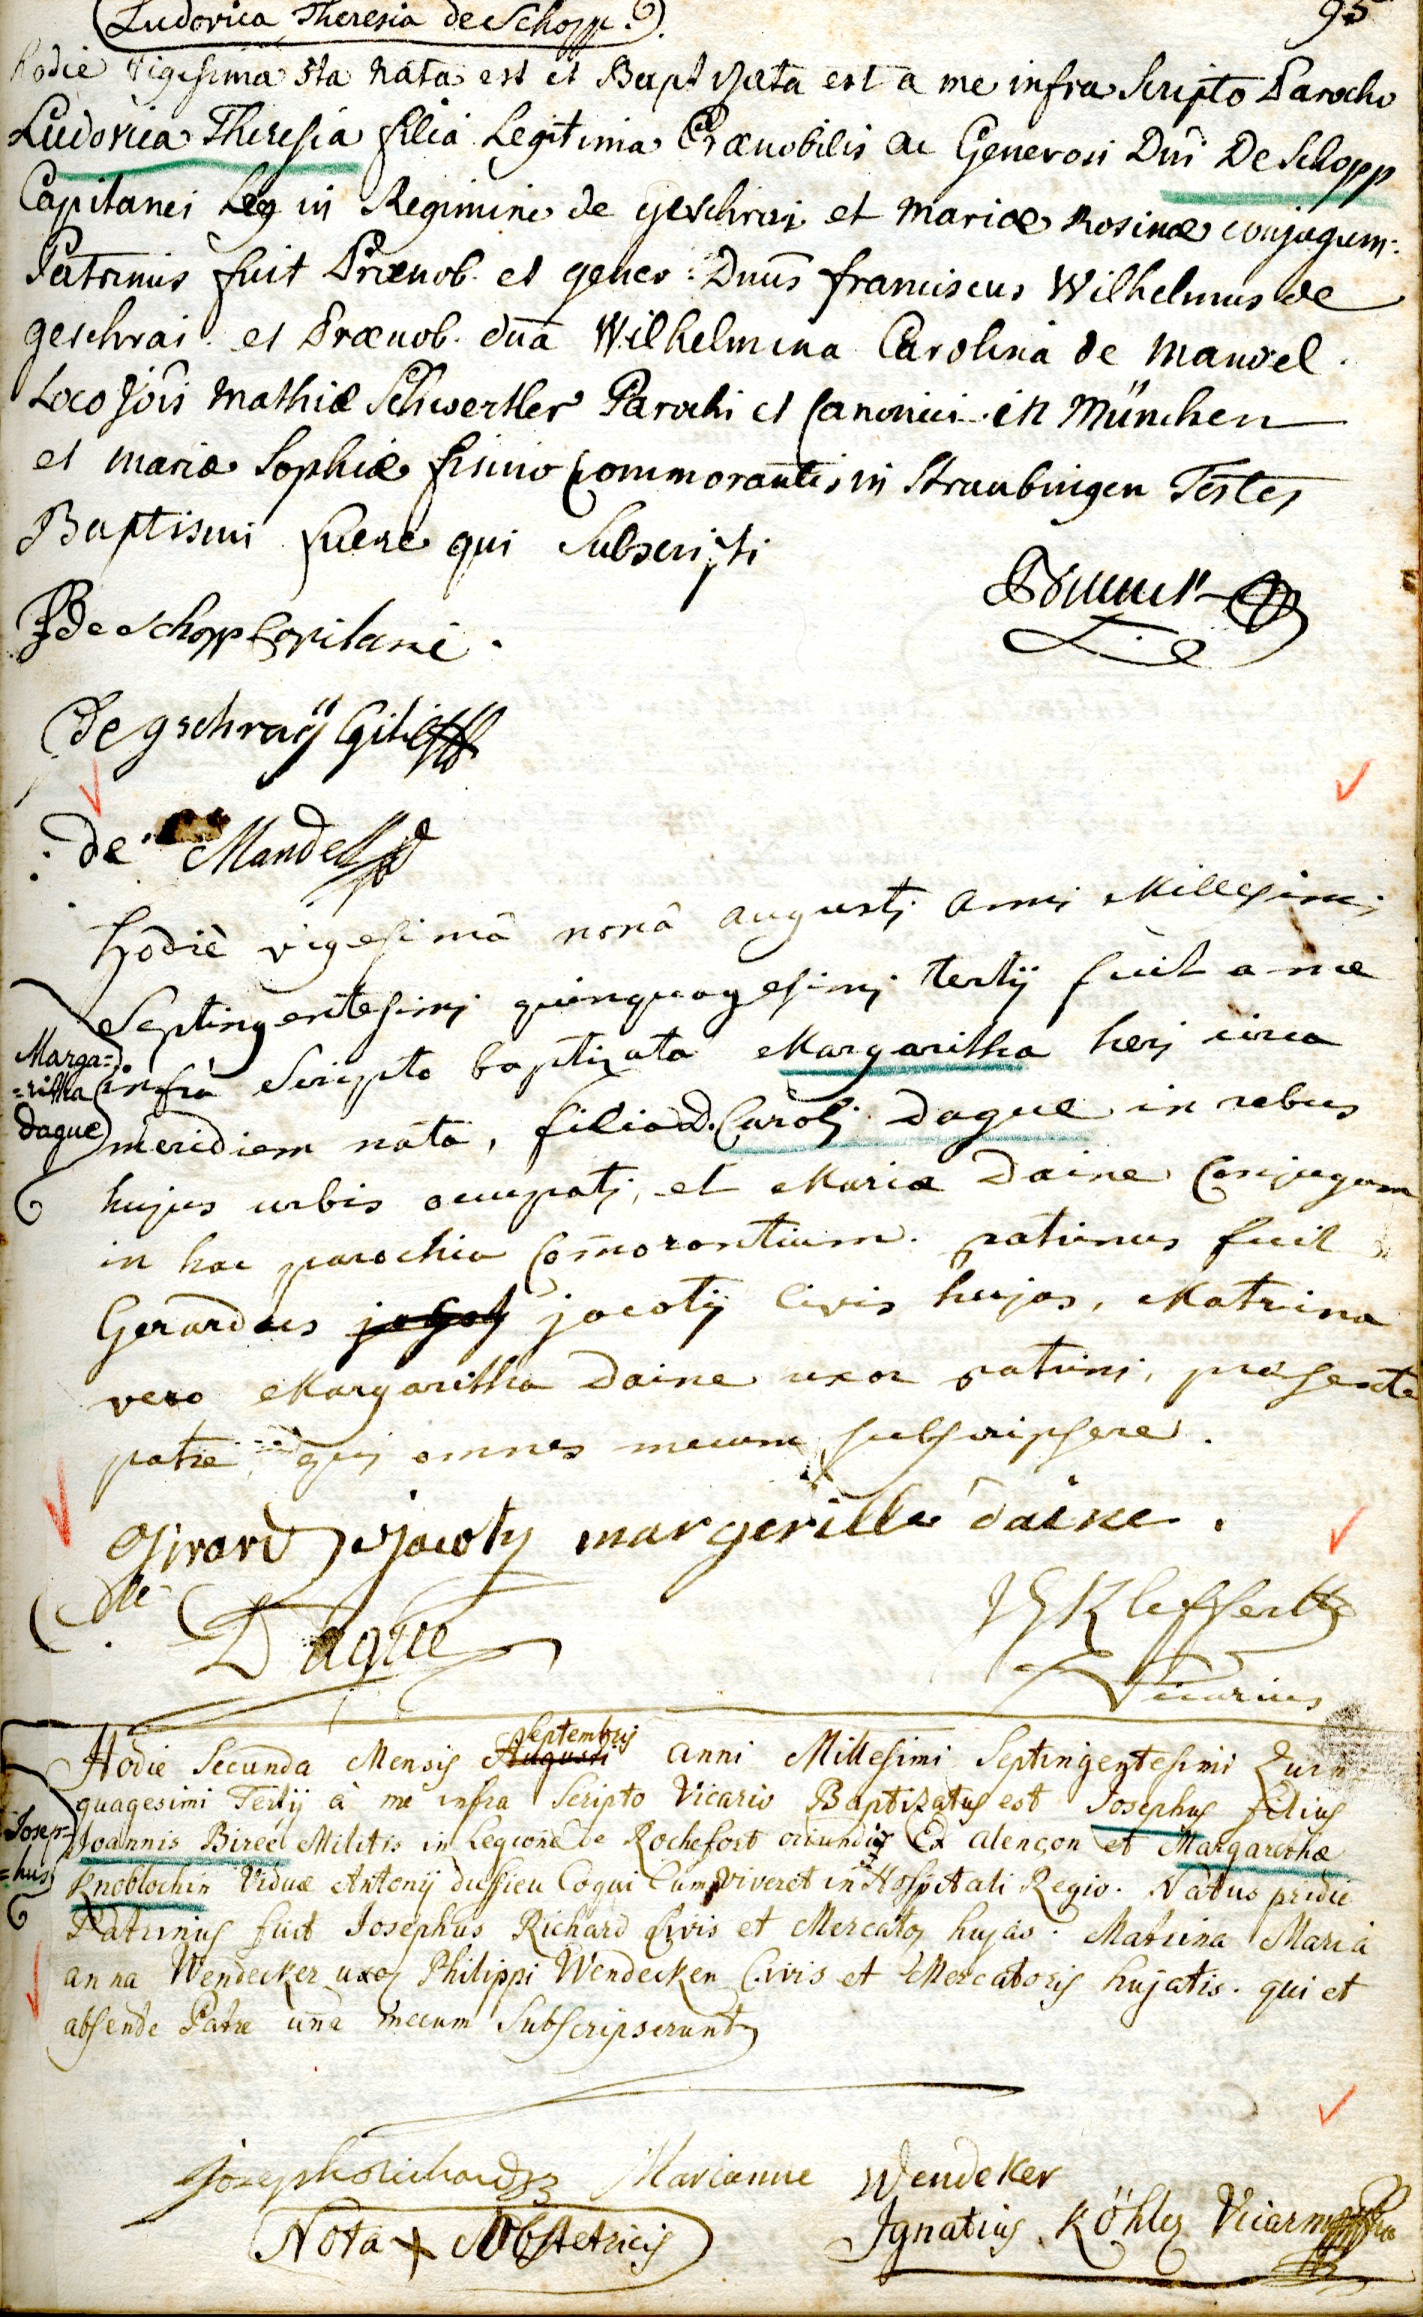 Ludovica Theresia de Schopp.
95
hodie vigesima 5ta nata est et Baptyzata est a me infra Scripto Parocho
Ludovica Theresia filia Legitima Prænobilis ac Generosi Dni De Schopp
Capitanei Leg in Regimine de geschrai et mariæ Rosinæ conjugum:
Patrinus fuit Prænob. et gener: Dnus franciscus Wilhelmus de
geschrai. et Prænob. dna Wilhelmina Carolina de Mandel.
Loco Jois Mathiæ Schwertler Parochi et Canonici in München
et mariæ Sophiæ commorantis in Straubingen Testes
Baptismi fuere qui Subscripti
de Schopp Capitane.
de gschraÿ
de Mandel
Hodiè vigesimâ nonâ augustj annj Millesimj
Septingentesimj quinquagesimj tertij fuit a me
Marga=
=ritha
dague
infrà Scripto baptizata Margaritha herj circa
meridiem nata, filia D. Carolj dague in rebus
hujus urbis occupatj, et Mariæ Daine Conjugum
in hac parochia Comorantium. patrinus fuit
Gerardus jacotij Civis hujas, Matrina
vero Margaritha Daine uxor patrini, præsente
patre quj omnes mecum subscripsere.
Girard Jacoty margerille daine.
Dague
Kleffert
Vicarius
Hodie Secunda Mensis Augusti Septembris anni Millesimi Septingentesimi Quin
quagesimi Tertij à me infra Scripto Vicario Baptizatus est Josephus filius
Josep=
=hus
Joannis Bireel Militis in Legione de Rochefort oriundi Ex alençon et Margarethæ
Knoblochin Viduæ Antonij dussieu Coqui Cum viveret in Hospitali Regio. Natus pridie
Patrinus fuit Josephus Richard Civis et Mercator hujas. Matrina Maria
anna Wendecker uxor Philippi Wendecken Civis et Mercatoris hujatis. qui et
absende Patre una mecum Subscripserunt
joseph Richard Marianne Wendeker
Nota + Obstetricis
Ignatius Köhler Vicarius